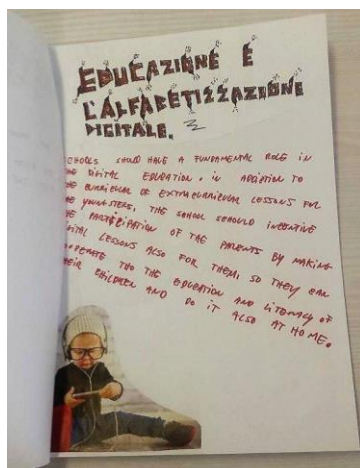 EDUCAZIONE E
L'ALFABETIZZAZIONE
DIGITALE.
SCHOOLS SHOULD HAVE A FUNDAMENTAL ROLE IN
THE DIGITAL EDUCATION. IN ADDICTION TO
THE CURRICULAR OR EXTRACURRICULAR LESSONS FOR
THE YOUNGSTERS, THE SCHOOL SCHOULD INCENTIVE
THE PARTECIPATION OF THE PARENTS BY MAKING
DIGITAL LESSONS ALSO FOR THEM, SO THEY CAN
COOPERATE THO THE EDUCATION AND LITERACY OF
THEIR CHILDREN AND DO IT ALSO AT HOME.